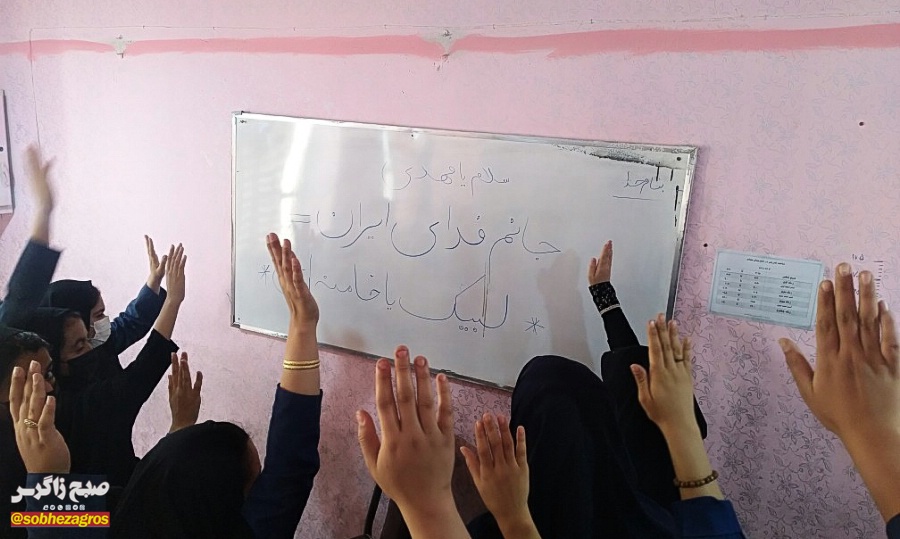 بنام خدا
سلام یا مهدی)
جانم فدای ایران =
* لبیک یا خامنه ای *
صبح زاگرس
@sobhezagros